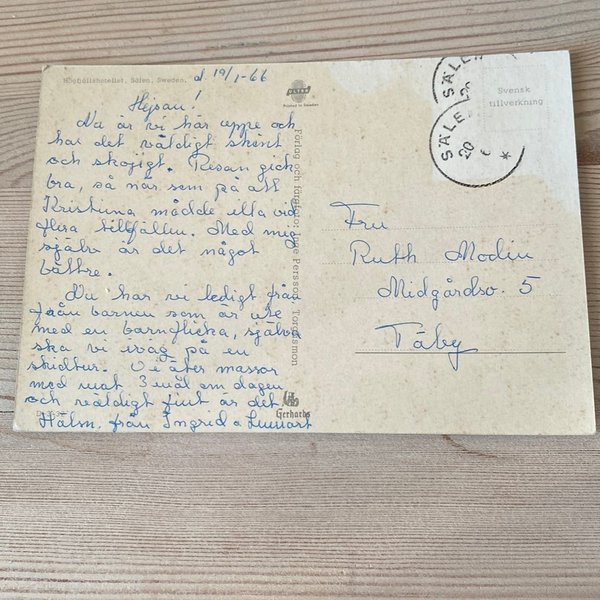 Högfjällshotellet, Sälen, Sweden.
d. 19/1-66
Hejsan!
Nu är vi här uppe och
har det väldigt skönt
och skojigt. Resan gick
bra, så när som på att
Kristiina mådde illa vid
flera tillfällen. Med mig
själv är det något
bättre.
Nu har vi ledigt från
från barnen som är ute
med en barnflicka, själva
ska vi iväg på en
skidtur. Vi äter massor
med mat 3 mål om dagen
och väldigt fint är det.
Hälsn. från Ingrid o Lennart
ULTRA
Printed in Sweden
Förlag och färgfoto: Persson, Torgåsmon
Gerhards
SÄLE
SÄLE
20
Svensk
tillverkning
Fru
Ruth Modin
Midgårdsv. 5
Täby